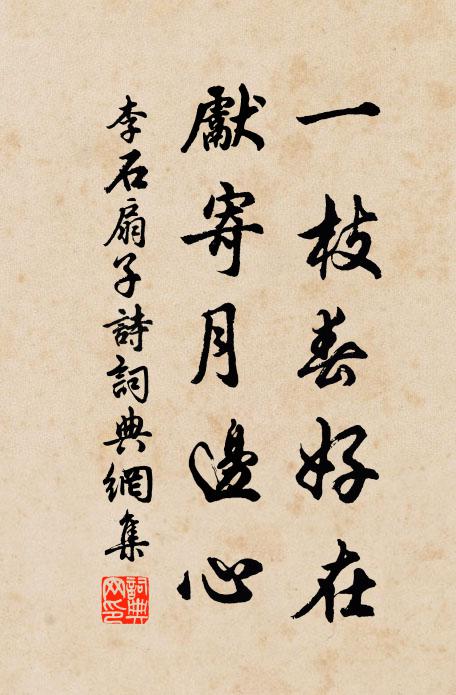 一枝春好在
獻寄月邊心
李石扇子詩詞典網集
詞典网印